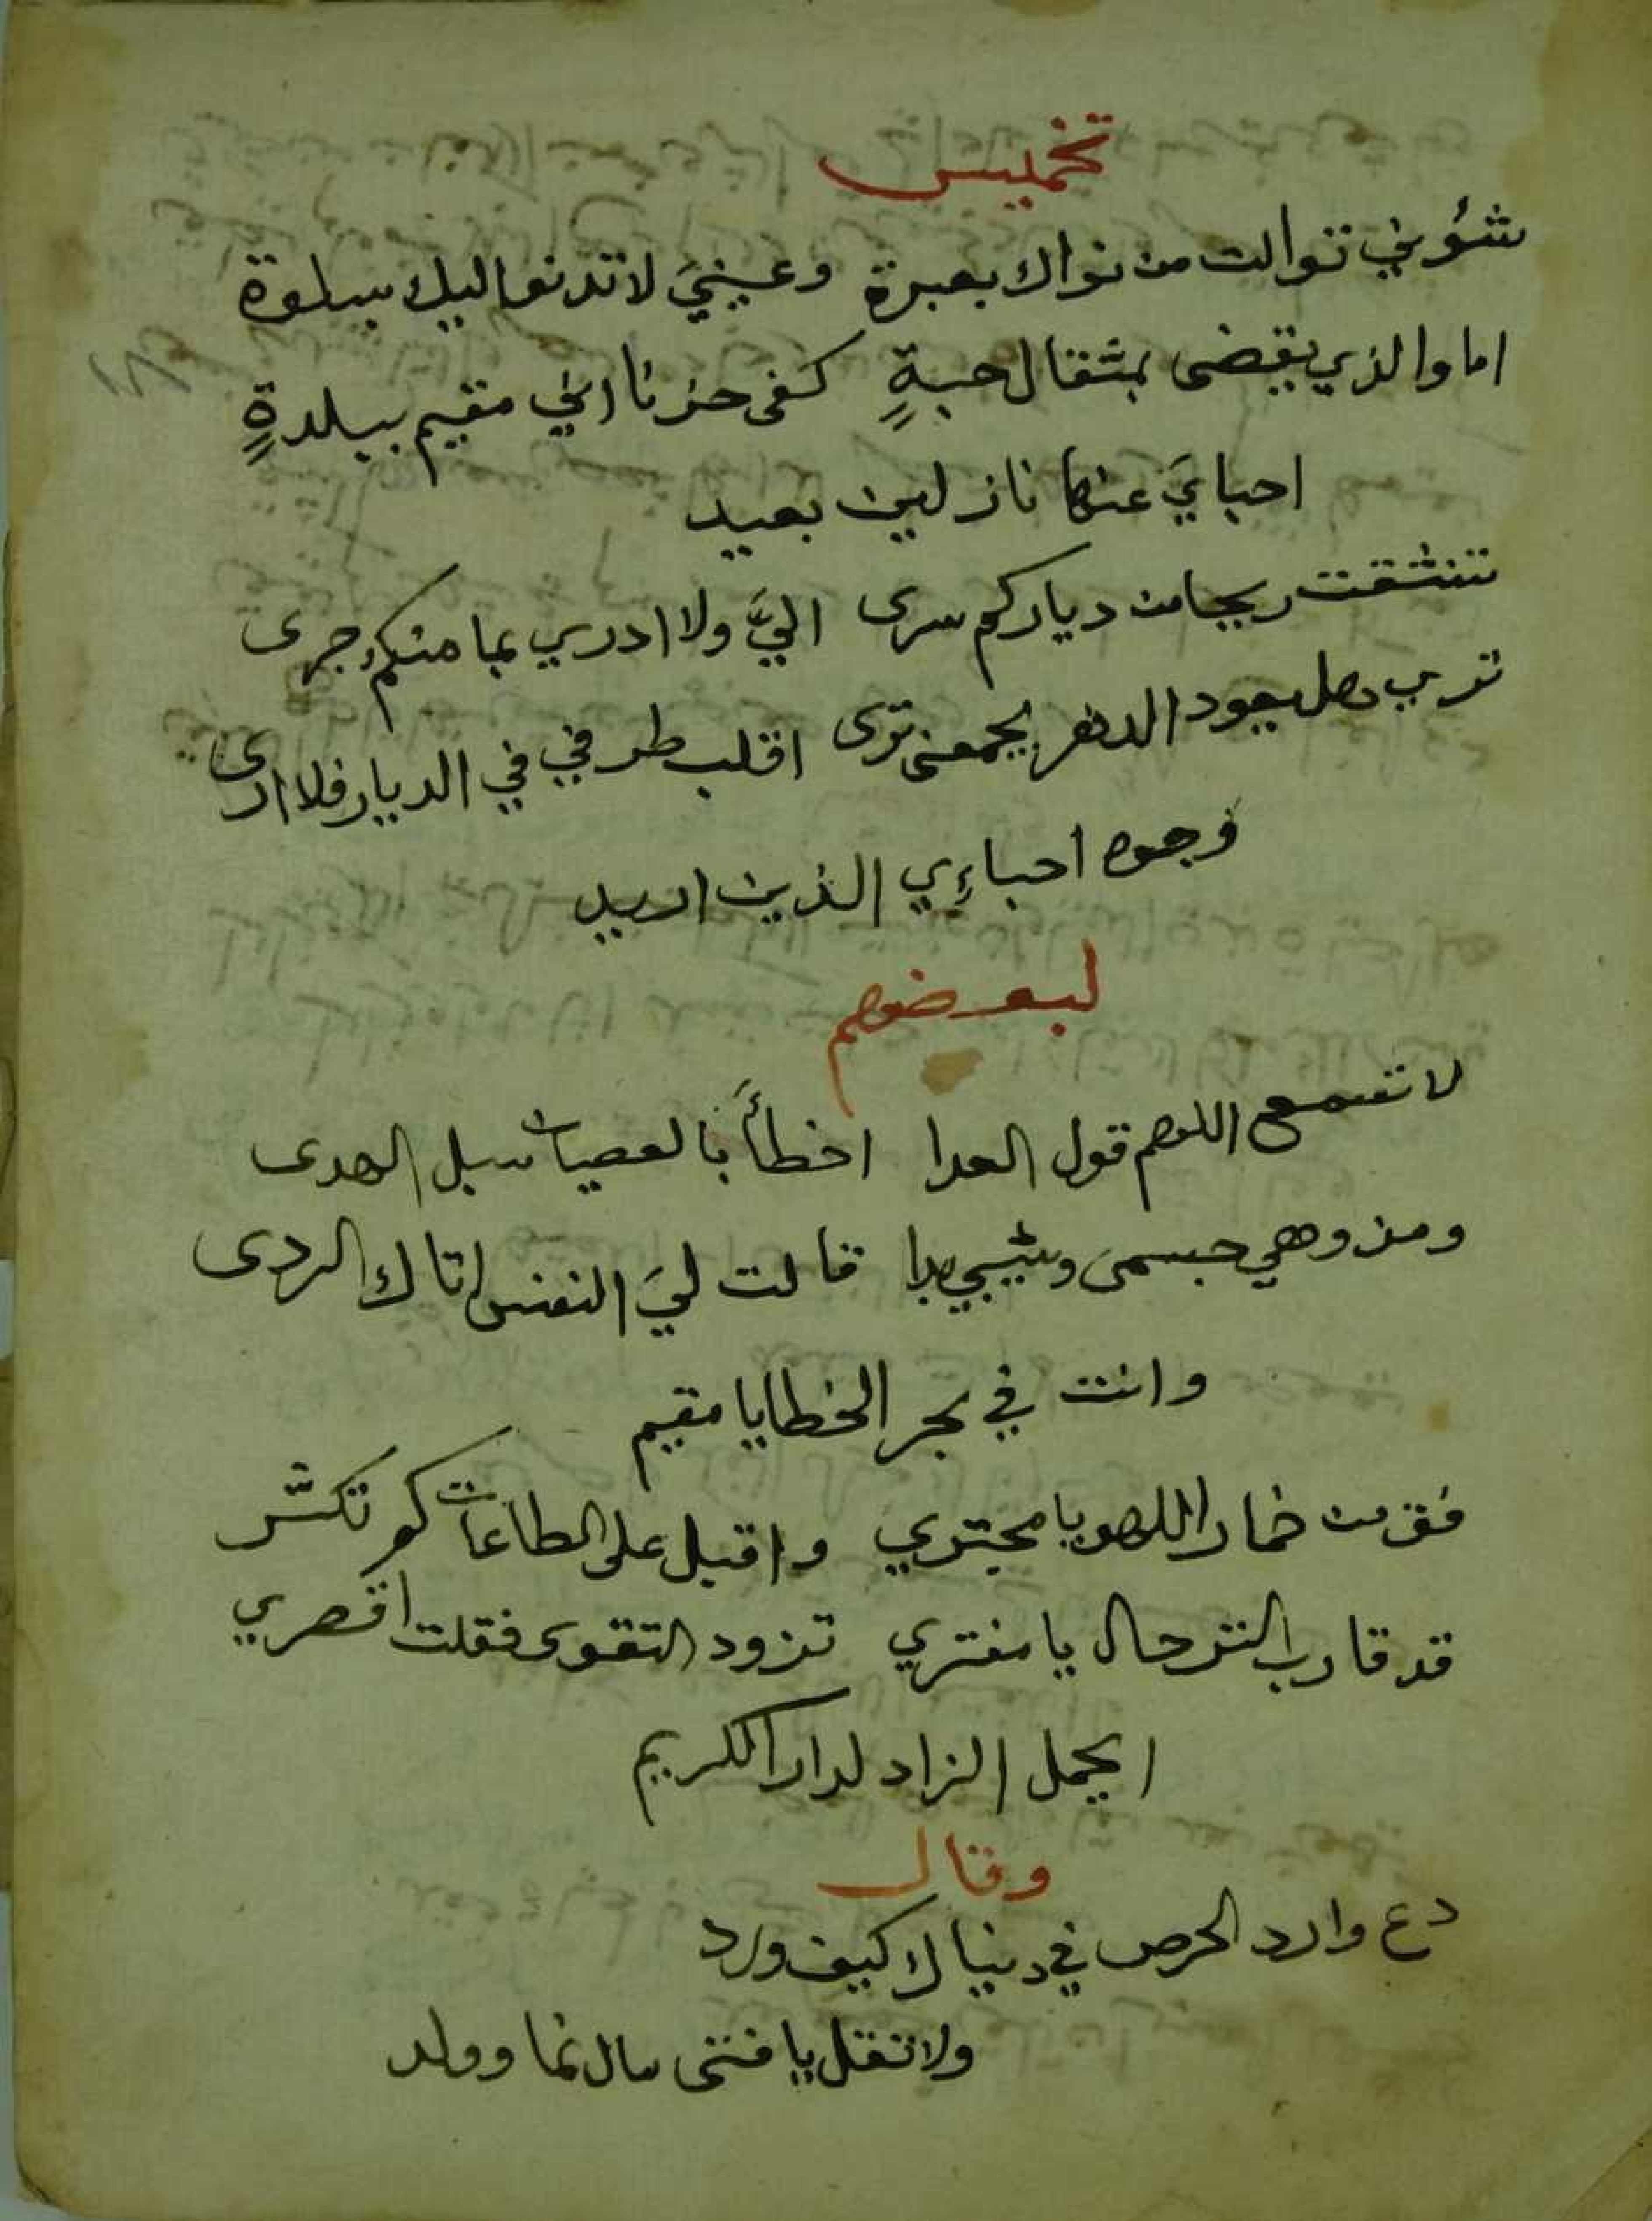 تخميس
شؤني توالت من نواك بعبرة وعينيَ لا تدنوا اليك بسلوة
اما والذي يقضى بمثقال حبةٍ كفى حزنا اني مقيم ببلدةٍ
احبايَ عنها نازلين بعيد
تنشقت ريحا من دياركم سرى اليَّ ولا ادري بما منكم جرى
ترى هل يجود الدهر يجمعنى ترى اقلب طرفي في الديار فلا ارى
وجوه احباءي الذين اريد
لبعضهم
لا تسمع اللهم قول العدا اخطأَ بالعصيان سبل الهدى
ومذ وهي جسمى وشيبي بدا قالت ليَ النفس اتاك الردى
وانت في بحر الخطايا مقيم
فق من خمار اللهو يا مجتري واقبل على الطاعات كم تكثر
قد قارب الترحال يا مفتري تزود التقوى فقلت اقصري
ايحمل الزاد لدار الكريم
وقال
دع وارد الحرص في دنياك كيف ورد
ولا تقل يا فتى مال نما وولد